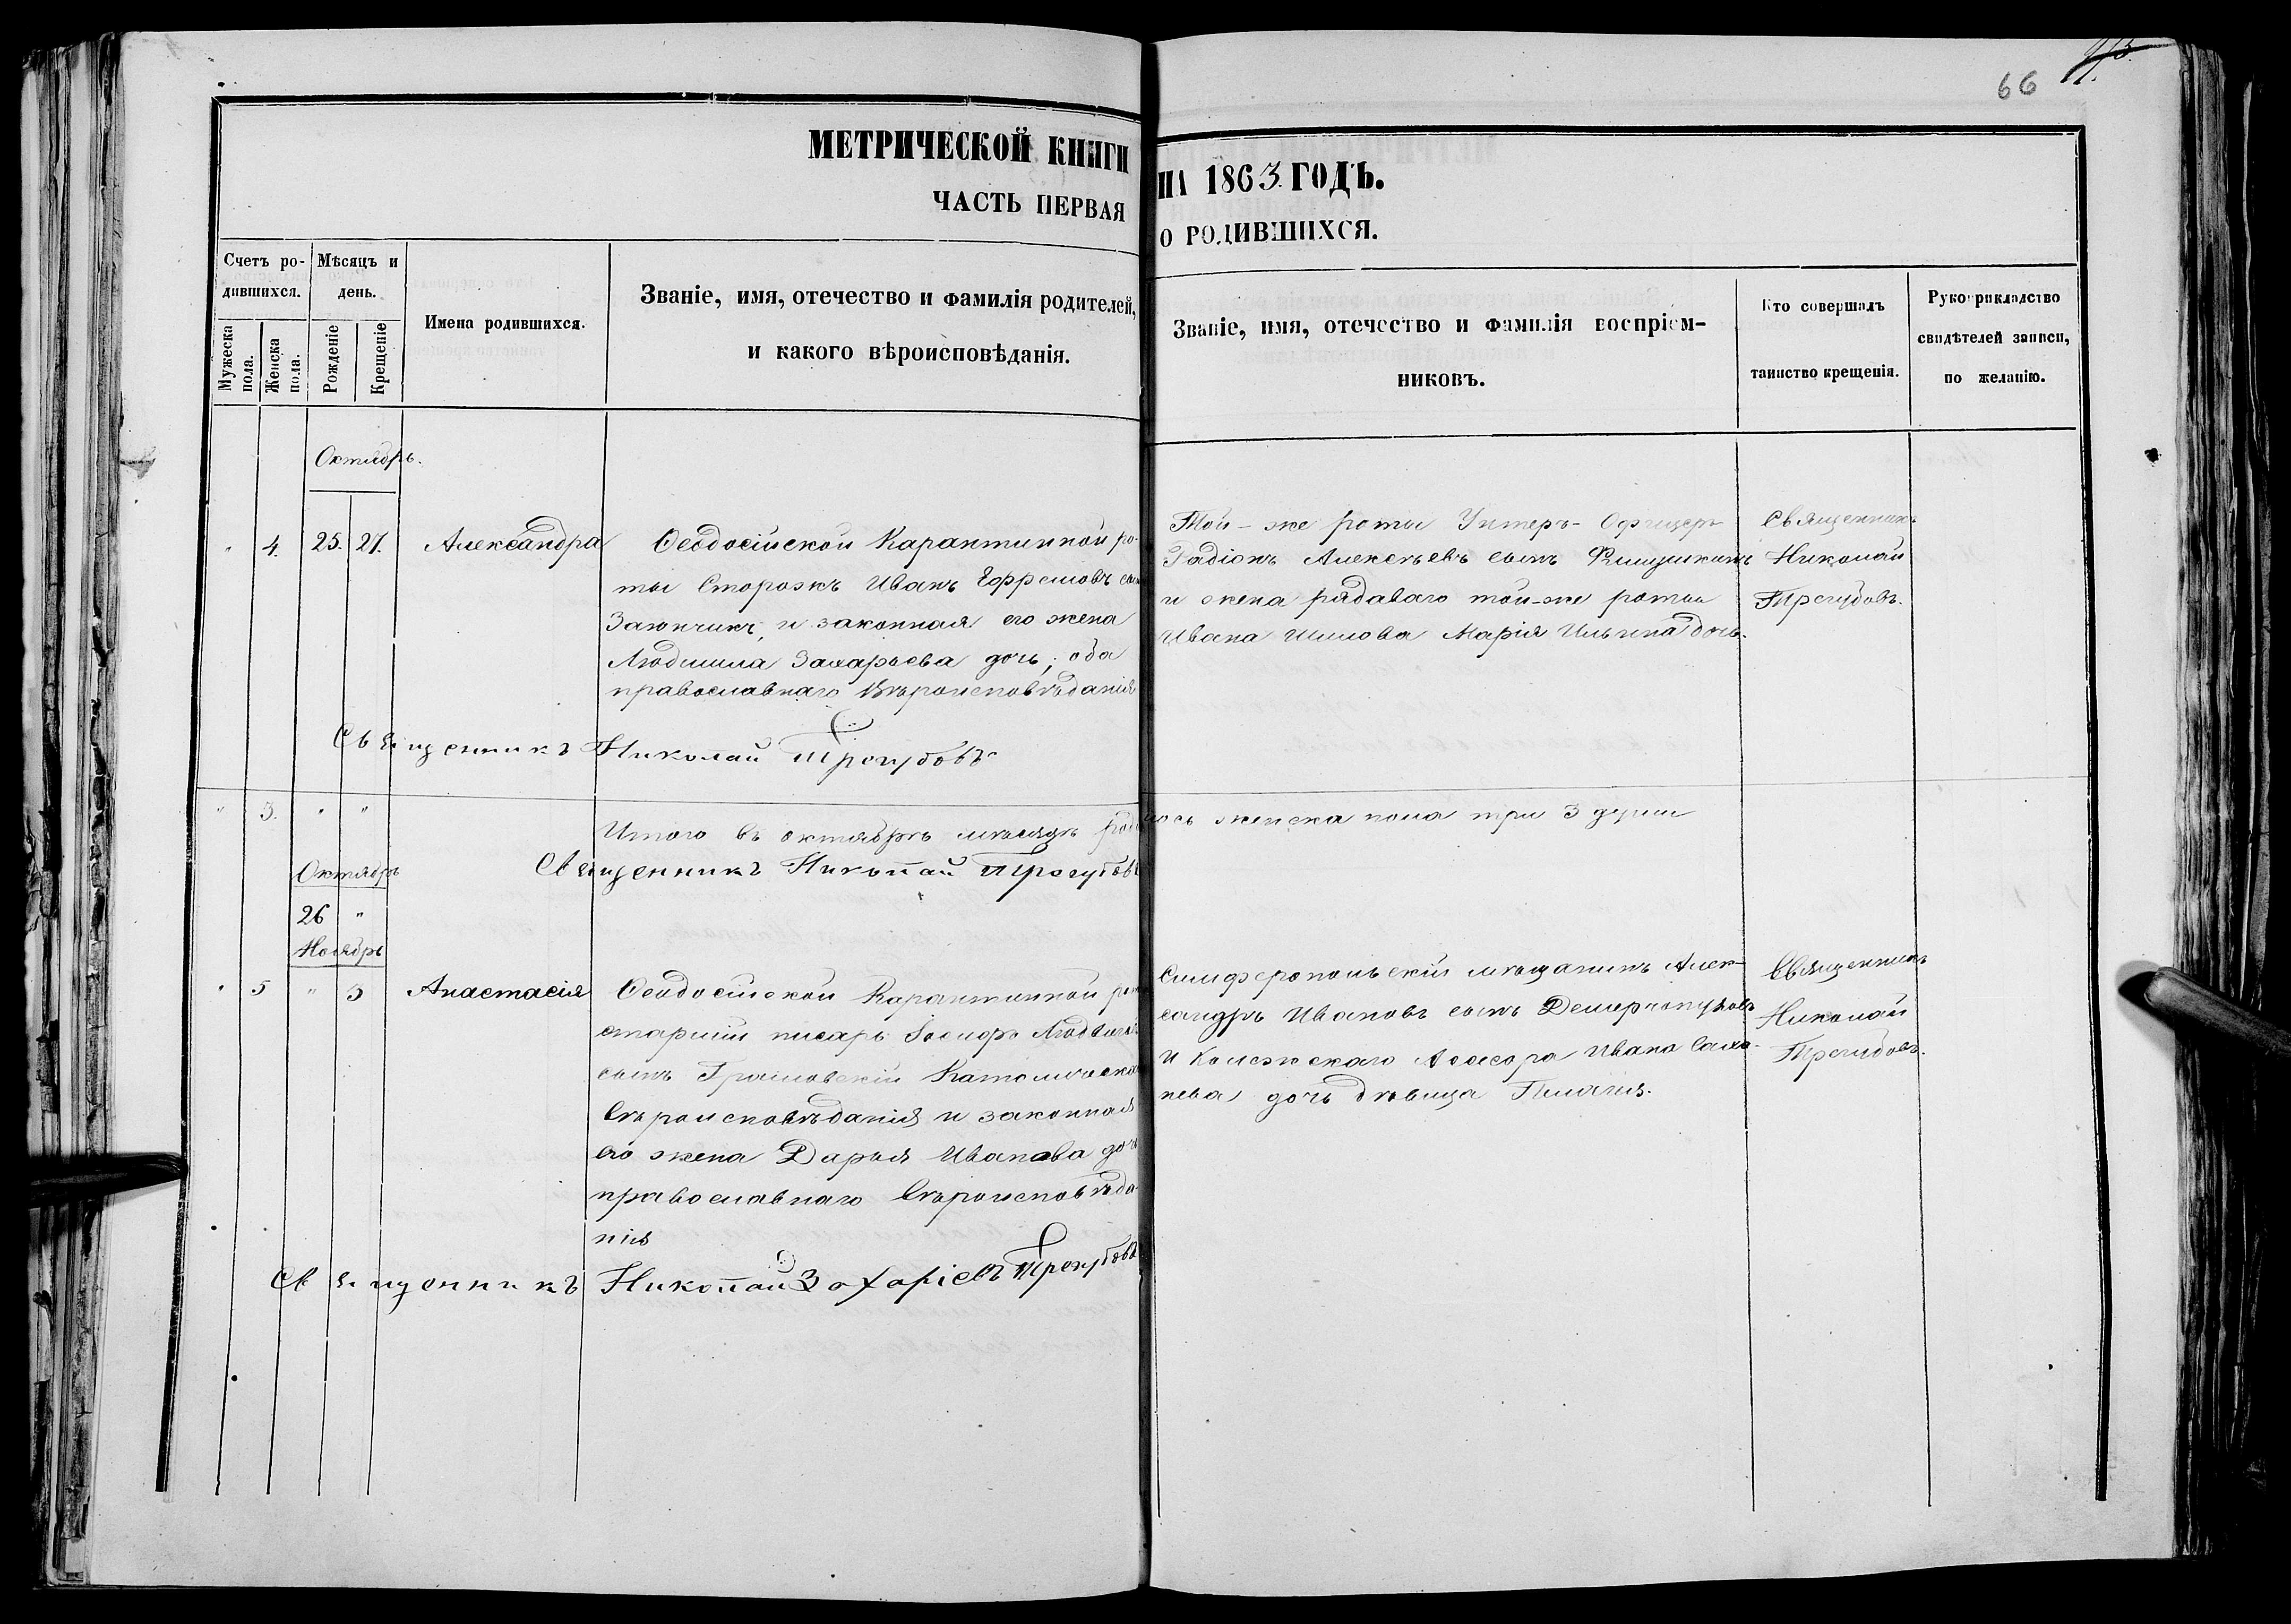 66
МЕТРИЧЕСКОЙ КНИГИ НА 1863 ГОДЪ.
ЧАСТЬ ПЕРВАЯ О РОДИВШИХСЯ.
Счетъ ро-
дившихся.
Мужеска
пола.
Женска
пола.
Мѣсяцъ и
день.
Рожденіе
Крещеніе
Имена родившихся.
Званіе, имя, отечество и фамилія родителей,
и какого вѣроисповѣданія.
Званіе, имя, отечество и фамилія воспріем-
никовъ.
Кто совершалъ
таинство крещенія.
Рукоприкладство
свидѣтелей записи,
по желанію.
Октябрь.
" 4. 25. 27. Александра
Ѳеодосійской Карантинной ро-
ты Сторожъ Иванъ Ефремовъ
Заюнчикъ, и законная его жена
Людмила Захарьева дочь; оба
православнаго Вѣроисповѣданія
Той-же роты Унтеръ-Офицеръ
Радіонъ Алексѣевъ сынъ
и жена рядаваго той-же роты
Ивана Шилова Марія Ильина дочь.
Священникъ
Николай
Трегубовъ.
Священникъ Николай Трегубовъ
" 3. " "
Итого въ октябрѣ мѣсяцѣ родилось женска пола три 3 души
Священникъ Николай Трегубовъ
Октябрь
26 "
Ноябрь
" 5 " 3 Анастасія
Ѳеодосійской Карантинной
старшій писарь Іосифъ
сынъ Грамовскій Католическа
Вѣроисповѣданія и законная
его жена Дарья Иванова доч
православнаго Вѣроисповѣда-
нія
Симферопольскій мѣщанинъ Алек-
сандръ Ивановъ сынъ
и Колежскаго Асесора Ивана
нева дочь дѣвица
Священникъ
Николай
Трегубовъ.
Священникъ Николай Захаріевъ Трегубовъ